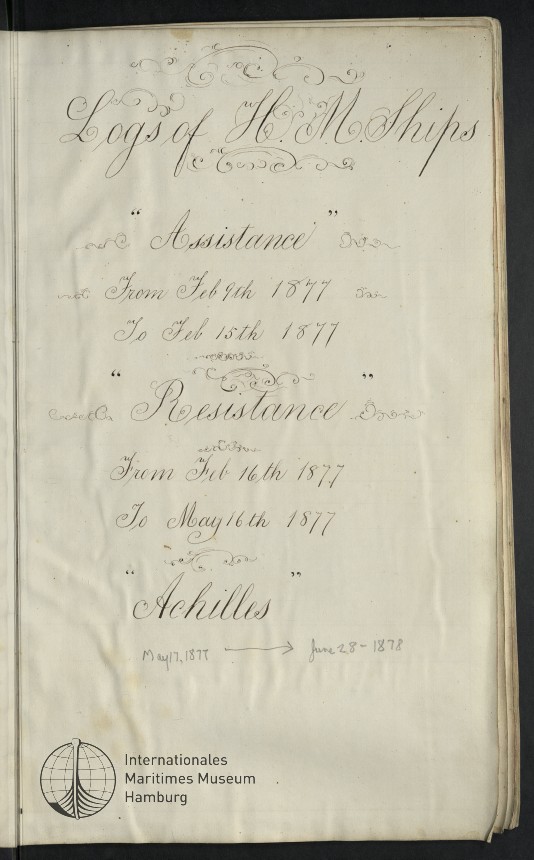 Logs of H. M. Ships
"Assistance"
From Feb 9th 1877
To Feb 15th 1877
"Resistance"
From Feb 16th 1877
To May 16th 1877
"Achilles"
May 17, 1877 → June 28 - 1878
Internationales
Maritimes Museum
Hamburg